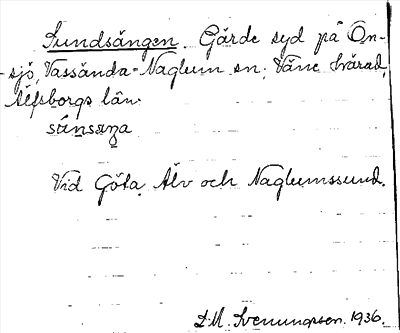 Sundsängen. Gärde syd på On-
sjö, Vassända-Naglum sn; Väne härad,
Älfsborgs län.
súnsaŋa
Vid Göta Älv och Naglumssund.
D.M. Svenungsson. 1936.